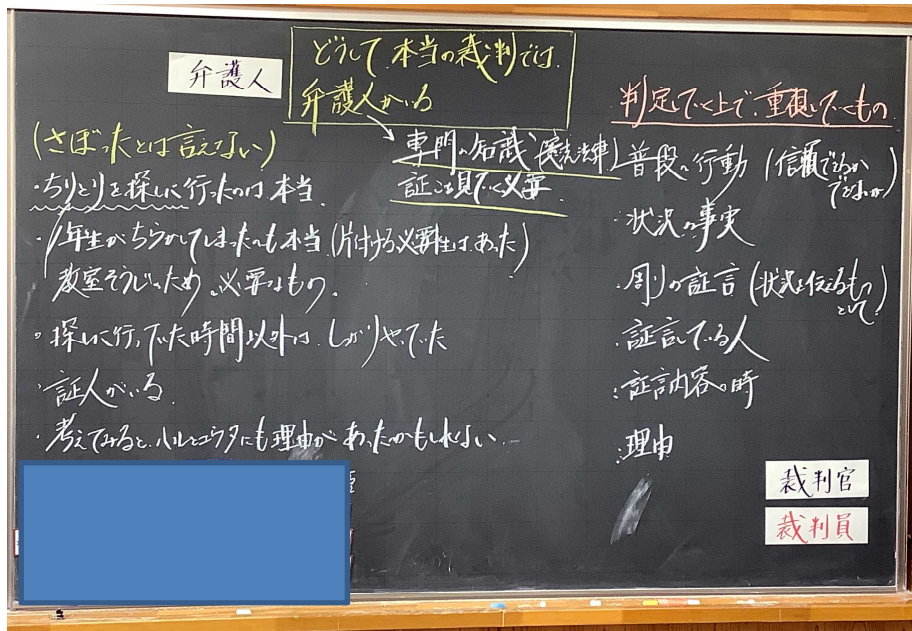 弁護人
どうして本当の裁判では、
弁護人がいる
専門の知識(憲法法律)
証こを見ていく必要
(さぼったとは言えない)
・ちりとりを探しに行ったのは本当.
・1年生がちらかしてしまったのも本当.(片付ける必要性はあった)
教室そうじのため。必要なもの.
・探しに行っていた時間以外は、しっかりやっていた
・証人がいる.
・考えてみると、ハルとコウタにも理由があったかもしれない
判定していく上で、重視していくもの
・普段の行動(信頼できるか
できないか)
・状況の事実
・周りの証言(状況を伝えるもの
として)
・証言している人
・証言内容の時
・理由
裁判官
裁判員